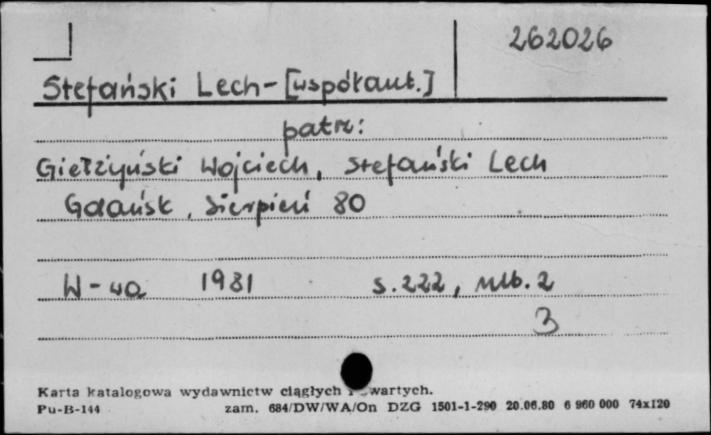 262026
Stefański Lech - [współaut.]
patrz:
Giełżyński Wojciech, Stefański Lech
Gdańsk, Sierpień 80
W-wa 1981 s. 222, nlb. 2
3
Karta katalogowa wydawnictw ciągłych i zwartych.
Pu-B-144 zam. 684/DW/WA/On DZG 1501-1-290 20.06.80 6 960 000 74x120